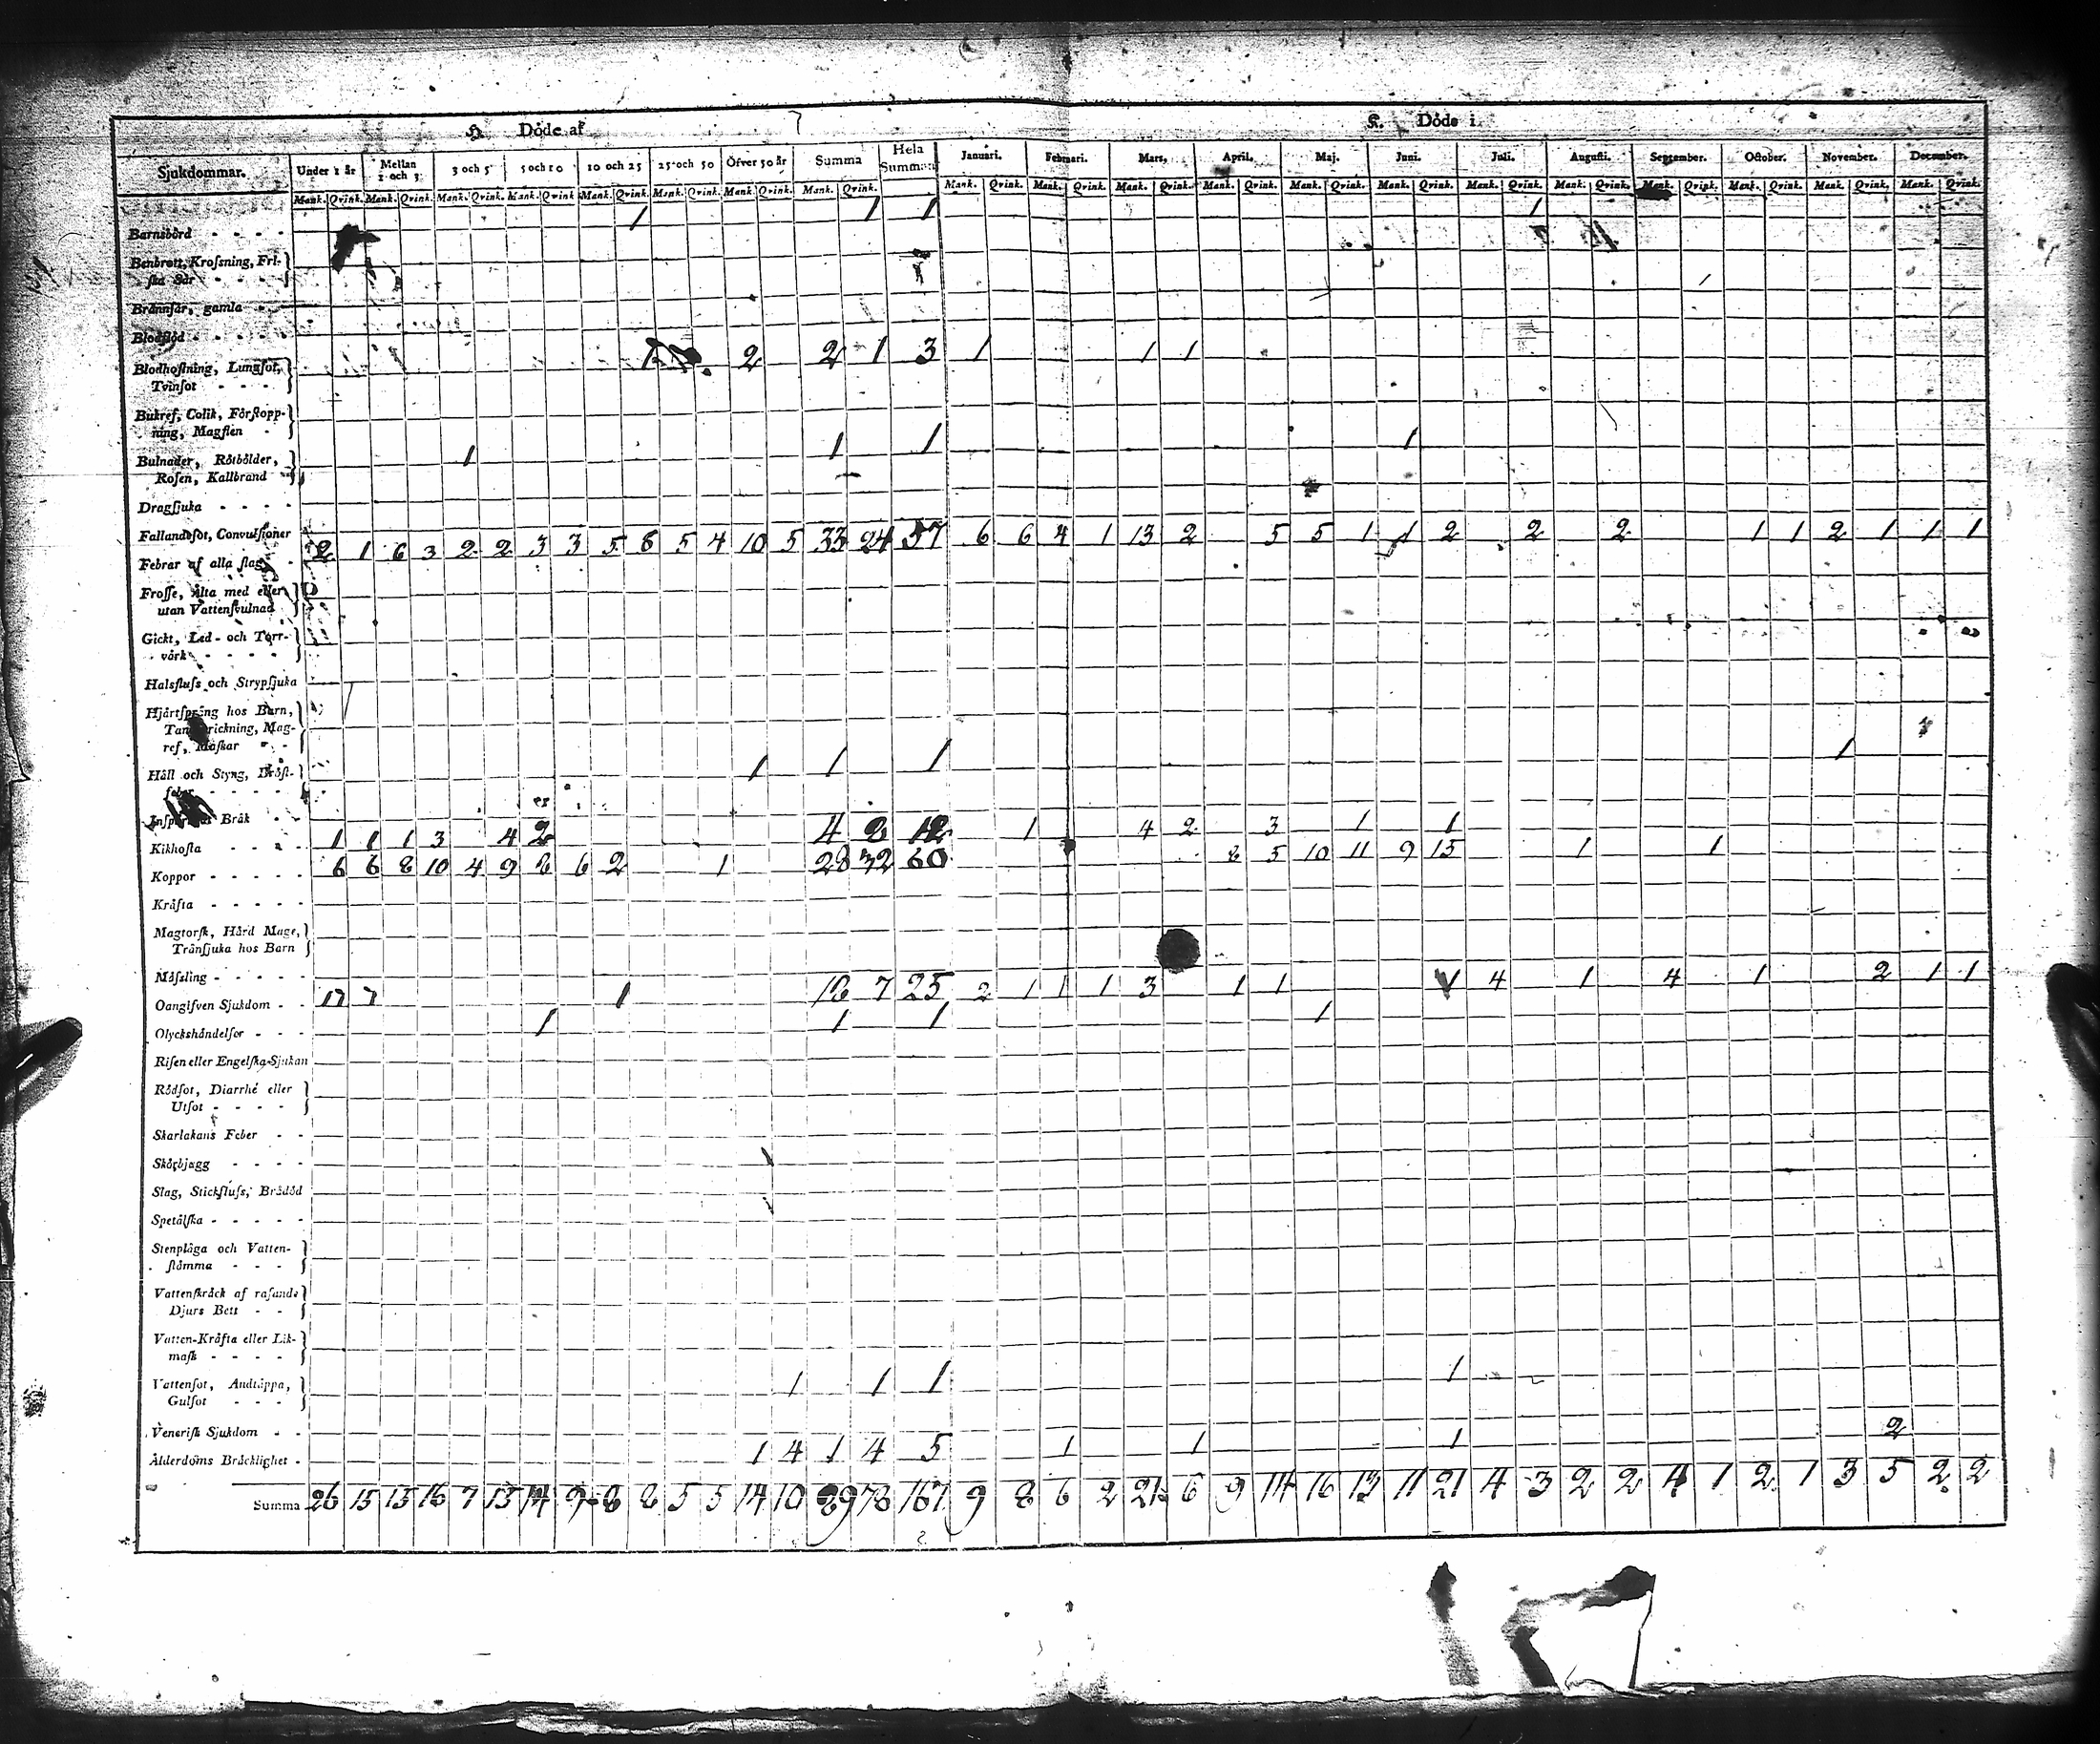 H. Döde af
K. Döde i
Sjukdommar. Under 1 år Mellan 1 och 3 3 och 5 5 och 10 10 och 25 25 och 50 Öfver 50 år Summa Hela Summan Januari. Februari. Mars. April. Maj. Juni. Juli. Augusti. September. October. November. December.
Mank. Qvink. Mank. Qvink. Mank. Qvink. Mank. Qvink. Mank. Qvink. Mank. Qvink. Mank. Qvink. Mank. Qvink. Mank. Qvink. Mank. Qvink. Mank. Qvink. Mank. Qvink. Mank. Qvink. Mank. Qvink. Mank. Qvink. Mank. Qvink. Mank. Qvink. Mank. Qvink. Mank. Qvink. Mank. Qvink.
Barnsbörd - - - - 1 1 1 1
Benbrott, Krofsning, Fri-
ska Sår - - - -
Brännsår, gamla - -
Blodflöd - - - - -
Blodhostning, Lungsot, 2 2 1 3 1 1 1
Tvinsot - - - -
Bukref, Colik, Förstopp-
ning, Magsten -
Bulnader, Rötbölder, 1 1 1 1
Rosen, Kallbrand - -
Dragsjuka - - - -
Fallandesot, Convulsioner
Febrar af alla slag - 2 1 6 3 2 2 3 3 5 8 5 4 10 5 33 24 57 6 6 4 1 13 2 5 5 1 1 2 2 2 1 1 2 1 1 1
Frosse, Älta med eller
utan Vattensvulnad
Gickt, Led- och Torr-
värk - - - - -
Halsfluss och Strypsjuka
Hjärtspräng hos Barn,
Mag-
ref, Maskar - -
Håll och Styng, Bröst- 1 1 1 1
feber - - - - -
Bråk - -
Kikhosta - - - - 1 1 1 3 4 2 4 8 12 1 4 2 3 1 1
Koppor - - - - - 6 6 8 10 4 9 8 6 2 1 28 32 60 8 5 10 11 9 15 1 1
Kräfta - - - - -
Magtorsk, Hård Mage,
Trånsjuka hos Barn
Måssling - - - - -
Oangifven Sjukdom - - 17 7 1 18 7 25 2 1 1 1 3 1 1 4 1 4 1 2 1 1
Olyckshändelser - - - 1 1 1 1
Risen eller Engelska-Sjukan
Rödsot, Diarrhé eller
Utsot - - - -
Skarlakans Feber - -
Skörbjugg - - - -
Slag, Stickfluss, Brådöd
Spetälska - - - - -
Stenplåga och Vatten-
stämma - - -
Vattenskräck af rasande
Djurs Bett - -
Vatten-Kräfta eller Lik-
mask - - - -
Vattensot, Andtäppa, 1 1 1 1
Gulsot - - -
Venerisk Sjukdom - -
Ålderdoms Bräcklighet - 1 4 1 4 5 1 1 1 2
Summa 26 15 15 16 7 13 14 9 8 8 5 5 14 10 89 78 167 9 8 6 2 21 6 9 14 16 13 11 21 4 3 2 2 4 1 2 1 3 5 2 2